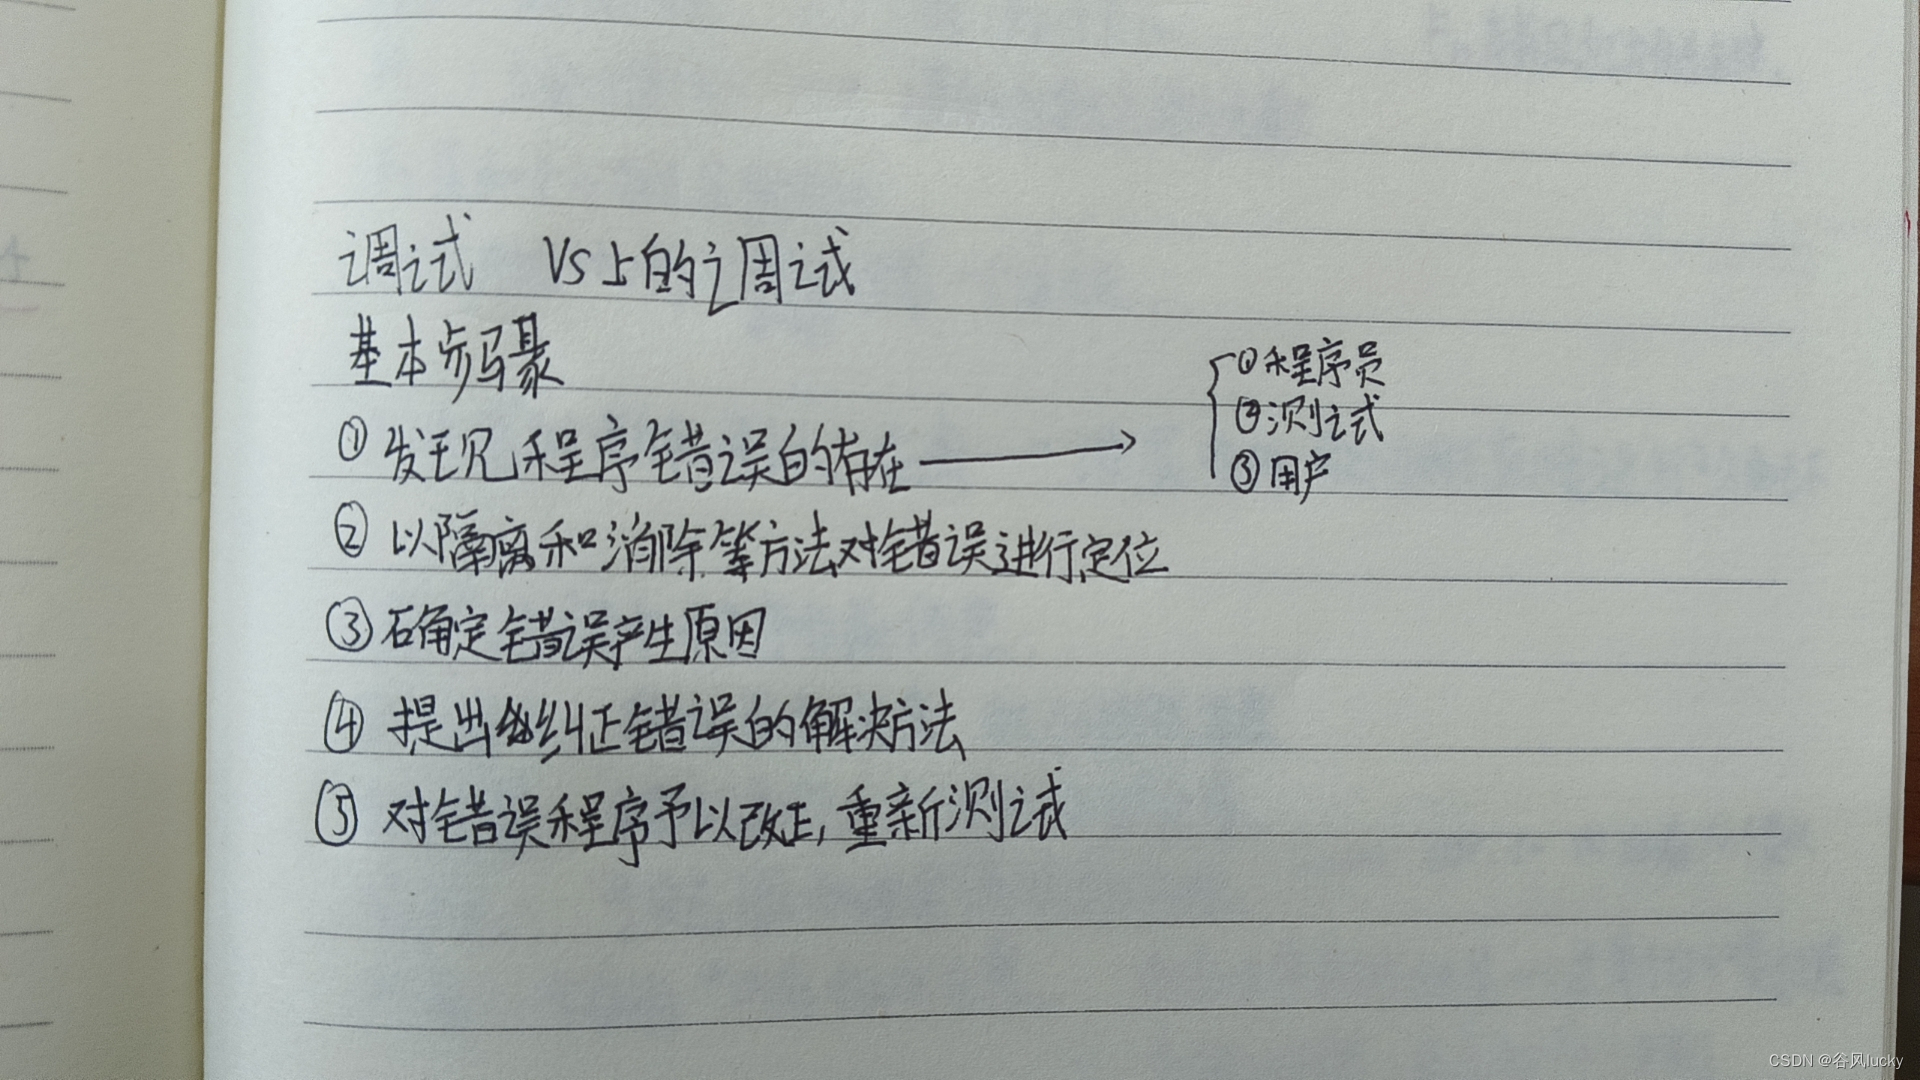 调试 VS上的调试
基本步骤
①发现程序错误的存在 →
①程序员
②测试
③用户
②以隔离和消除等方法对错误进行定位
③确定错误产生原因
④提出纠正错误的解决方法
⑤对错误程序予以改正,重新测试
CSDN @谷风lucky